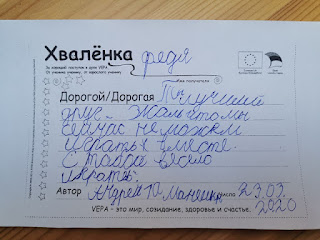 Хвалёнка федя
Имя получателя
Дорогой/Дорогая Ты лучший
друг. Жаль что мы
сейчас не можем
играть вместе.
С табой весело
играть.
Автор Андрей Ю. числа 23.03
VEPA - это мир, созидание, здоровье и счастье. 2020